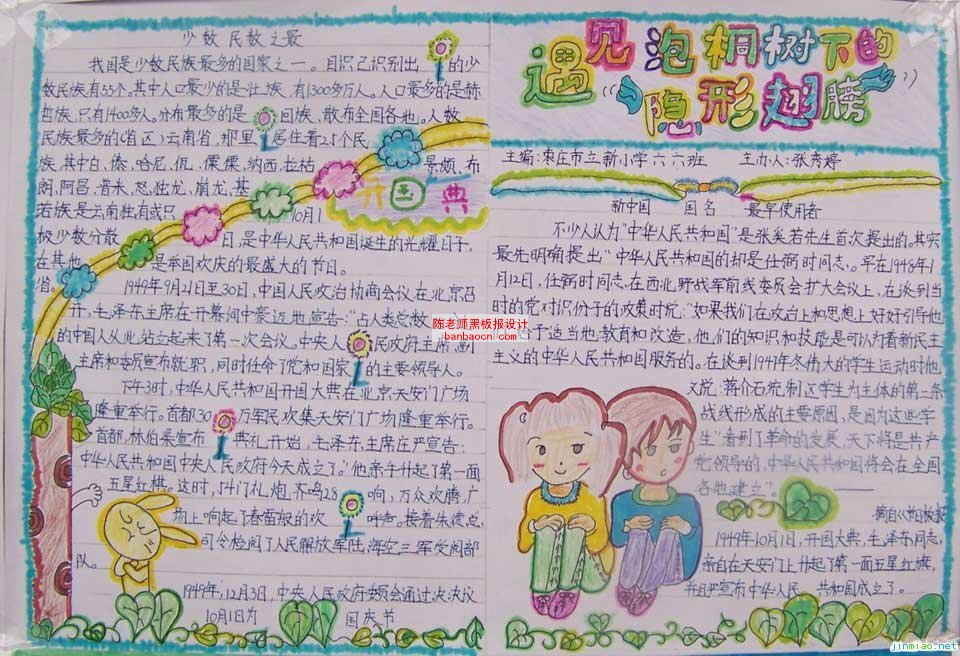 少数 民数之最
我国是少数民族最多的国家之一。目识己识别出 的少
数民族有55个,其中人口最少的是壮族,有1300多万人。人口最多的是赫
哲族,只有1400多人。分布最多的是 回族,散布全国各地。人数
民族最多的(省区)云南省,那里 居住着25个民
族,其中白、傣、哈尼、佤、傈僳、纳西、拉祜 景颇、布
朗、阿昌、普米、怒、独龙、崩龙、基
若族是云南独有或只
极少数分散
在其他
省。
开国 典
10月1
日,是中华人民共和国诞生的光耀日子,
是举国欢庆的最盛大的节日。
1949年9月21至30日,中国人民政治协商会议在北京召
开,毛泽东主席在开幕词中豪迈地宣告:“占人类总数
的中国人从此站立起来了第一次会议。中央人 民政府主席、副
主席和委员宣布就职,同时任命了党和国家 的主要领导人。
下午3时,中华人民共和国开国大典在北京天安门广场
隆重举行。首都30 万军民欢集天安门广场隆重举行。
首都,林伯渠宣布 典礼开始,毛泽东主席庄严宣告:
中华人民共和国中央人民政府今天成立了。”他亲手升起了第一面
五星红旗。这时,54门礼炮齐鸣28 响,万众欢腾,广
场上响起了春雷般的欢 呼声。接着朱德总
司令检阅了人民解放军陆、海空三军受阅部
队。
1949年,12月3日,中央人民政府委员会通过决决议
10月1日为 国庆节
遇见泡桐树下的
隐形翅膀
主编:枣庄市立新小学六六班 主办人:张秀婷
新中国 国名 最早使用者
不少人认为“中华人民共和国”是张奚若先生首次提出的。其实
最先明确提出“中华人民共和国的却是任弼时同志。早在1948年1
月12日,任弼时同志在西北野战军前线委员会扩大会议上,在谈到
当时的党对识份子的政策时说:“如果我们在政台上和思想上好好引导他
给予适当地教育和改造,他们的知识和技能是可以为着新民主
主义的中华人民共和国服务的。在谈到1947年冬伟大的学生运动时他
又说:蒋介石统制区学生为主体的第二条
战线形成的主要原因,是因为这些学
生“看到了革命的发展,天下将是共产
党领导的,中华人民共和国将会在全国
各地建立”。
摘自
1949年10月1日,开国大典,毛泽东同志,
亲自在天安门上升起了第一面五星红旗,
并且严宣布中华人民 共和国成立了。
陈老师黑板报设计
banbaocn.com
jinmiao.net